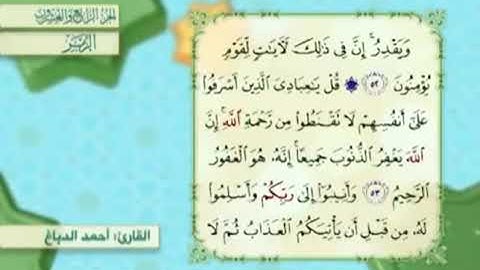 الجزء الرابع والعشرون
الزمر
وَيَقْدِرُ ۚ إِنَّ فِى ذَٰلِكَ لَـَٔايَٰتٍ لِّقَوْمٍ
يُؤْمِنُونَ ٥٢ ۞ قُلْ يَٰعِبَادِىَ ٱلَّذِينَ أَسْرَفُوا۟
عَلَىٰٓ أَنفُسِهِمْ لَا تَقْنَطُوا۟ مِن رَّحْمَةِ ٱللَّهِ ۚ إِنَّ
ٱللَّهَ يَغْفِرُ ٱلذُّنُوبَ جَمِيعًا ۚ إِنَّهُۥ هُوَ ٱلْغَفُورُ
ٱلرَّحِيمُ ٥٣ وَأَنِيبُوٓا۟ إِلَىٰ رَبِّكُمْ وَأَسْلِمُوا۟
لَهُۥ مِن قَبْلِ أَن يَأْتِيَكُمُ ٱلْعَذَابُ ثُمَّ لَا
القارئ: أحمد الدباغ